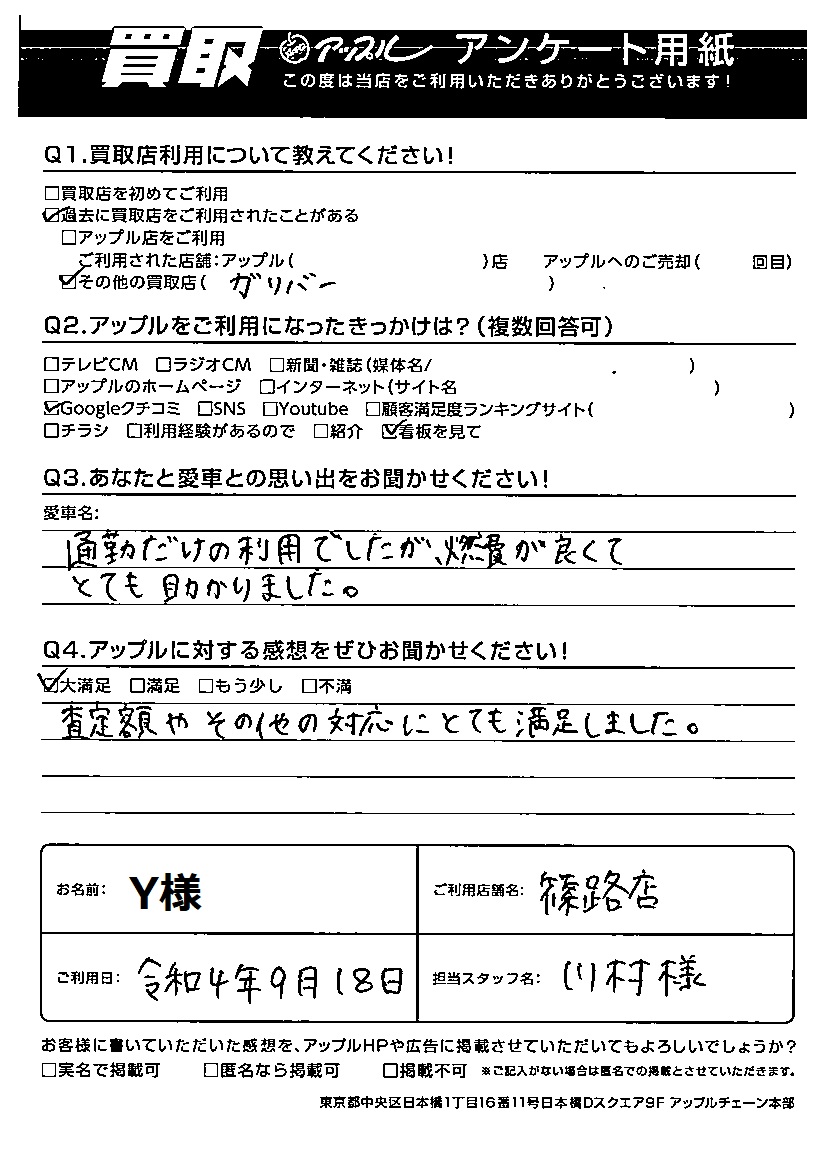 買取 アップル アンケート用紙
この度は当店をご利用いただきありがとうございます！
Q1.買取店利用について教えてください！
□買取店を初めてご利用
☑過去に買取店をご利用されたことがある
□アップル店をご利用
ご利用された店舗：アップル（ ）店 アップルへのご売却（ 回目）
☑その他の買取店（ ガリバー ）
Q2.アップルをご利用になったきっかけは？（複数回答可）
□テレビCM □ラジオCM □新聞・雑誌（媒体名/ ）
□アップルのホームページ □インターネット（サイト名 ）
☑Googleクチコミ □SNS □Youtube □顧客満足度ランキングサイト（ ）
□チラシ □利用経験があるので □紹介 ☑看板を見て
Q3.あなたと愛車との思い出をお聞かせください！
愛車名：
通勤だけの利用でしたが、燃費が良くて
とても助かりました。
Q4.アップルに対する感想をぜひお聞かせください！
☑大満足 □満足 □もう少し □不満
査定額やその他の対応にとても満足しました。
お名前： Y様 ご利用店舗名： 篠路店
ご利用日： 令和4年9月18日 担当スタッフ名： 川村様
お客様に書いていただいた感想を、アップルHPや広告に掲載させていただいてもよろしいでしょうか？
□実名で掲載可 □匿名なら掲載可 □掲載不可 ※ご記入がない場合は匿名での掲載とさせていただきます。
東京都中央区日本橋1丁目16番11号日本橋Dスクエア9F アップルチェーン本部